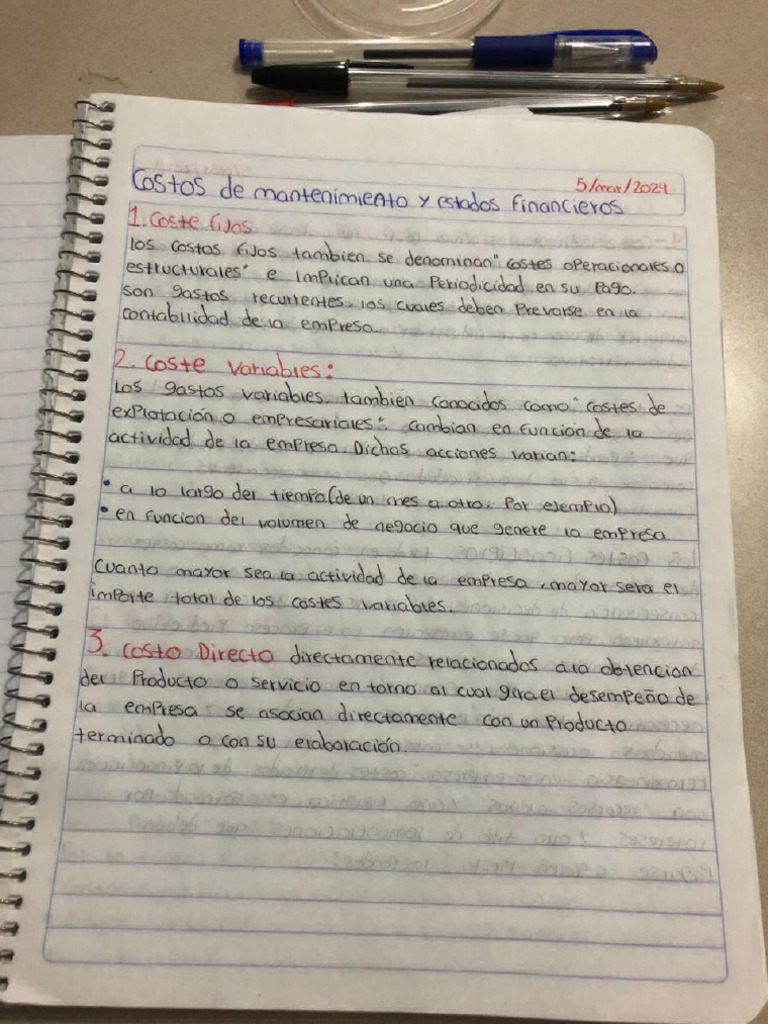 5/mar/2024
Costos de mantenimiento y estados financieros
1. Coste fijos
los costos fijos tambien se denominan "costes operacionales o
estructurales" e implican una Periodicidad en su Pago.
son gastos recurrentes, los cuales deben Preverse en la
contabilidad de la empresa.
2. Coste Variables:
Los gastos variables, tambien conocidos como "costes de
explotación o empresariales", cambian en función de la
actividad de la empresa. Dichas acciones varian:
• a lo largo del tiempo (de un mes a otro, Por ejemplo)
• en funcion del volumen de negocio que genere la empresa
Cuanto mayor sea la actividad de la empresa, mayor sera el
importe total de los costes variables.
3. Costo Directo directamente relacionados a la obtencion
del Producto o servicio en torno al cual gira el desempeño de
la empresa se asocian directamente con un Producto
terminado o con su elaboración.